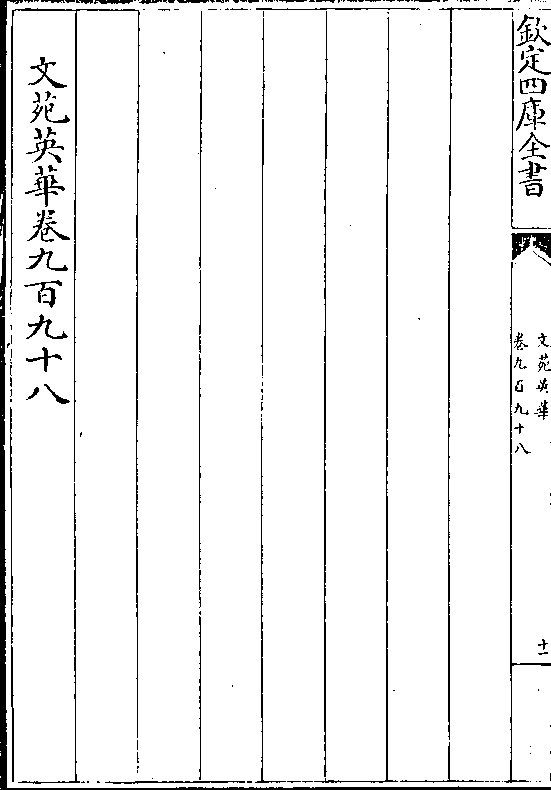 欽定四庫全書
文苑英華
卷九百九十八
十一
文苑英華卷九百九十八